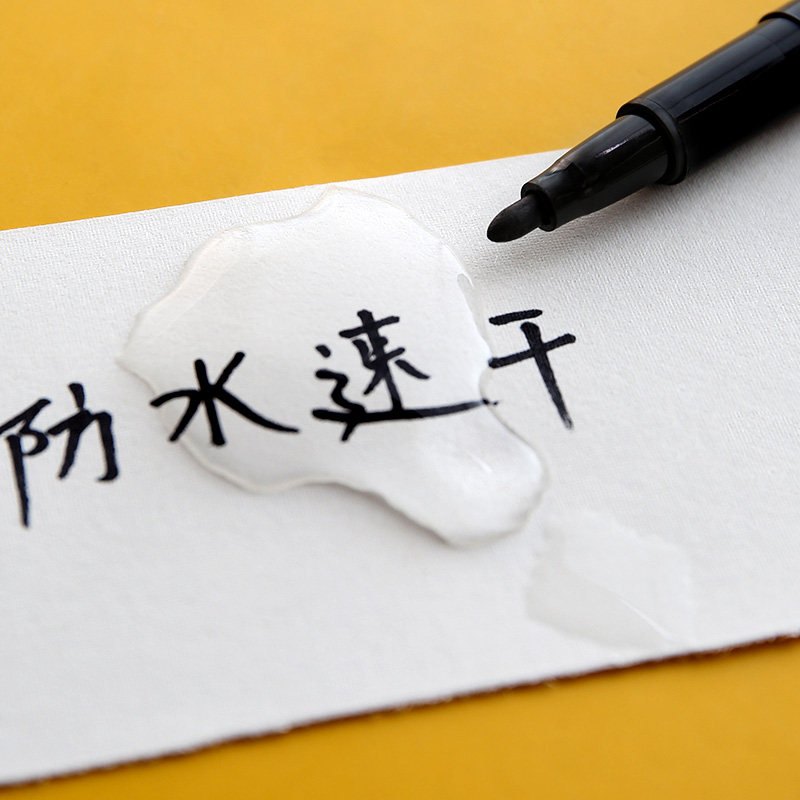 防水速干